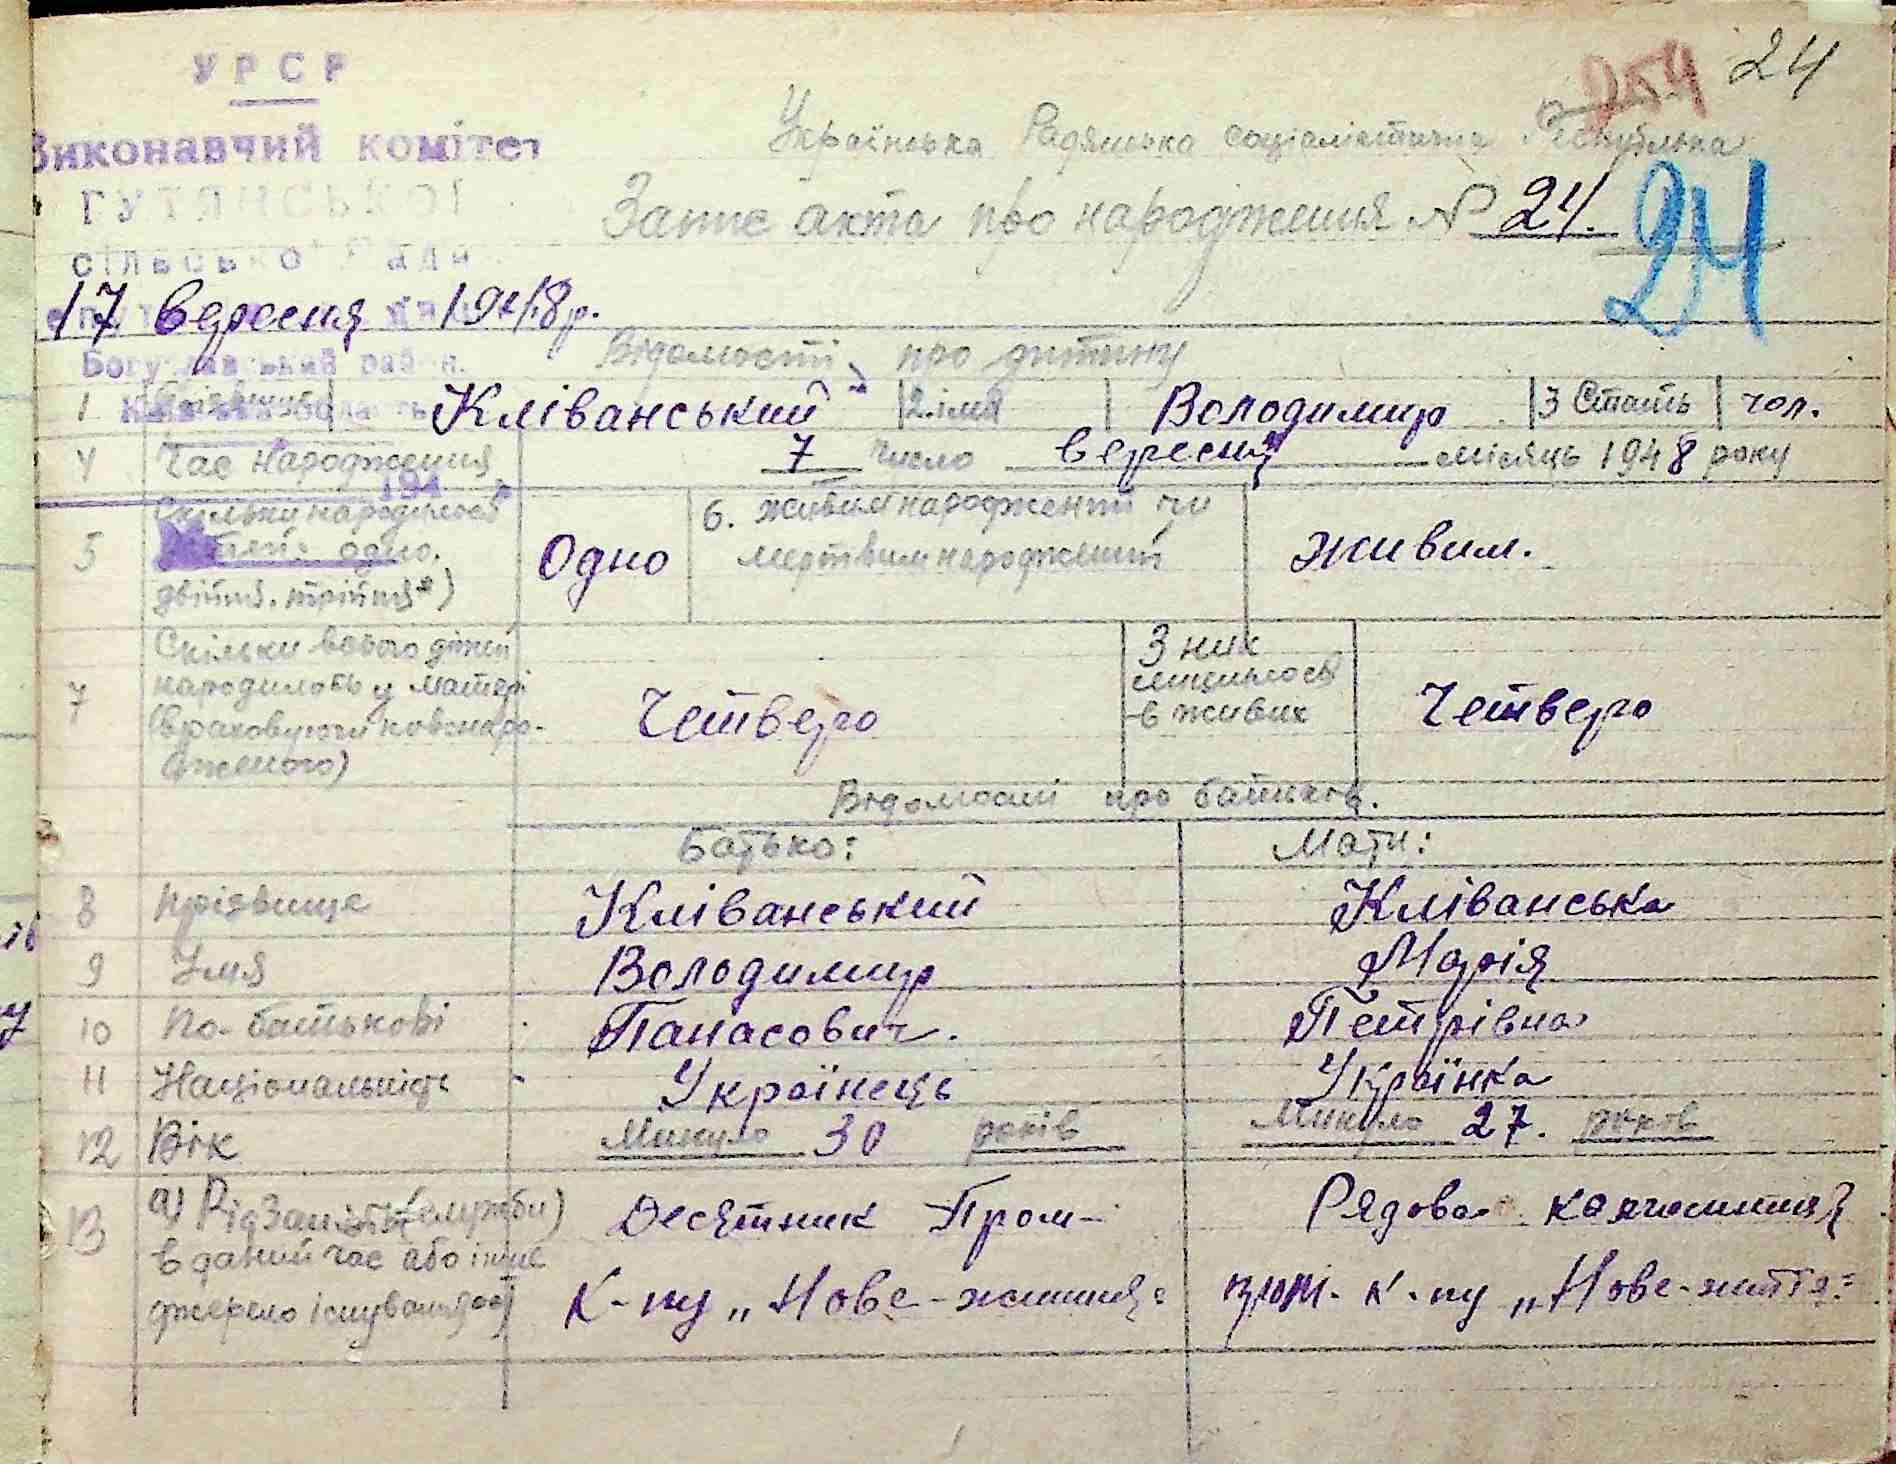 254 24
УРСР
Виконавчий комітет
ГУТЯНСЬКОЇ
сільської Ради
Українська Радянська соціалістична Республіка
Запис акта про народження № 24. 24
17 вересня 1948 р.
Богуславський район.
Відомості про дитину
1 Прізвище Кліванський 2. імя Володимир 3 Стать чол.
4 Час народження 7 число вересня місяць 1948 року
194
5 Скільки народилося дітей: одно, двійня, трійня*) Одно 6. живим народжений чи мертвим народжений живим.
7 Скільки всього дітей народилось у матері (враховуючи новонародженого) Четверо З них лишилось в живих Четверо
Відомості про батьків.
Батько: Мати:
8 прізвище Кліванський Кліванська
9 Імя Володимир Марія
10 По-батькові Панасович. Петрівна
11 Національність Українець Українка
12 Вік Минуло 30 років Минуло 27. років
13 а) Рід занять (служби) Десятник Пром- Рядова колгоспниця
в даний час або інше
джерело існування К-пу „Нове-життя" к-пу „Нове-життя"